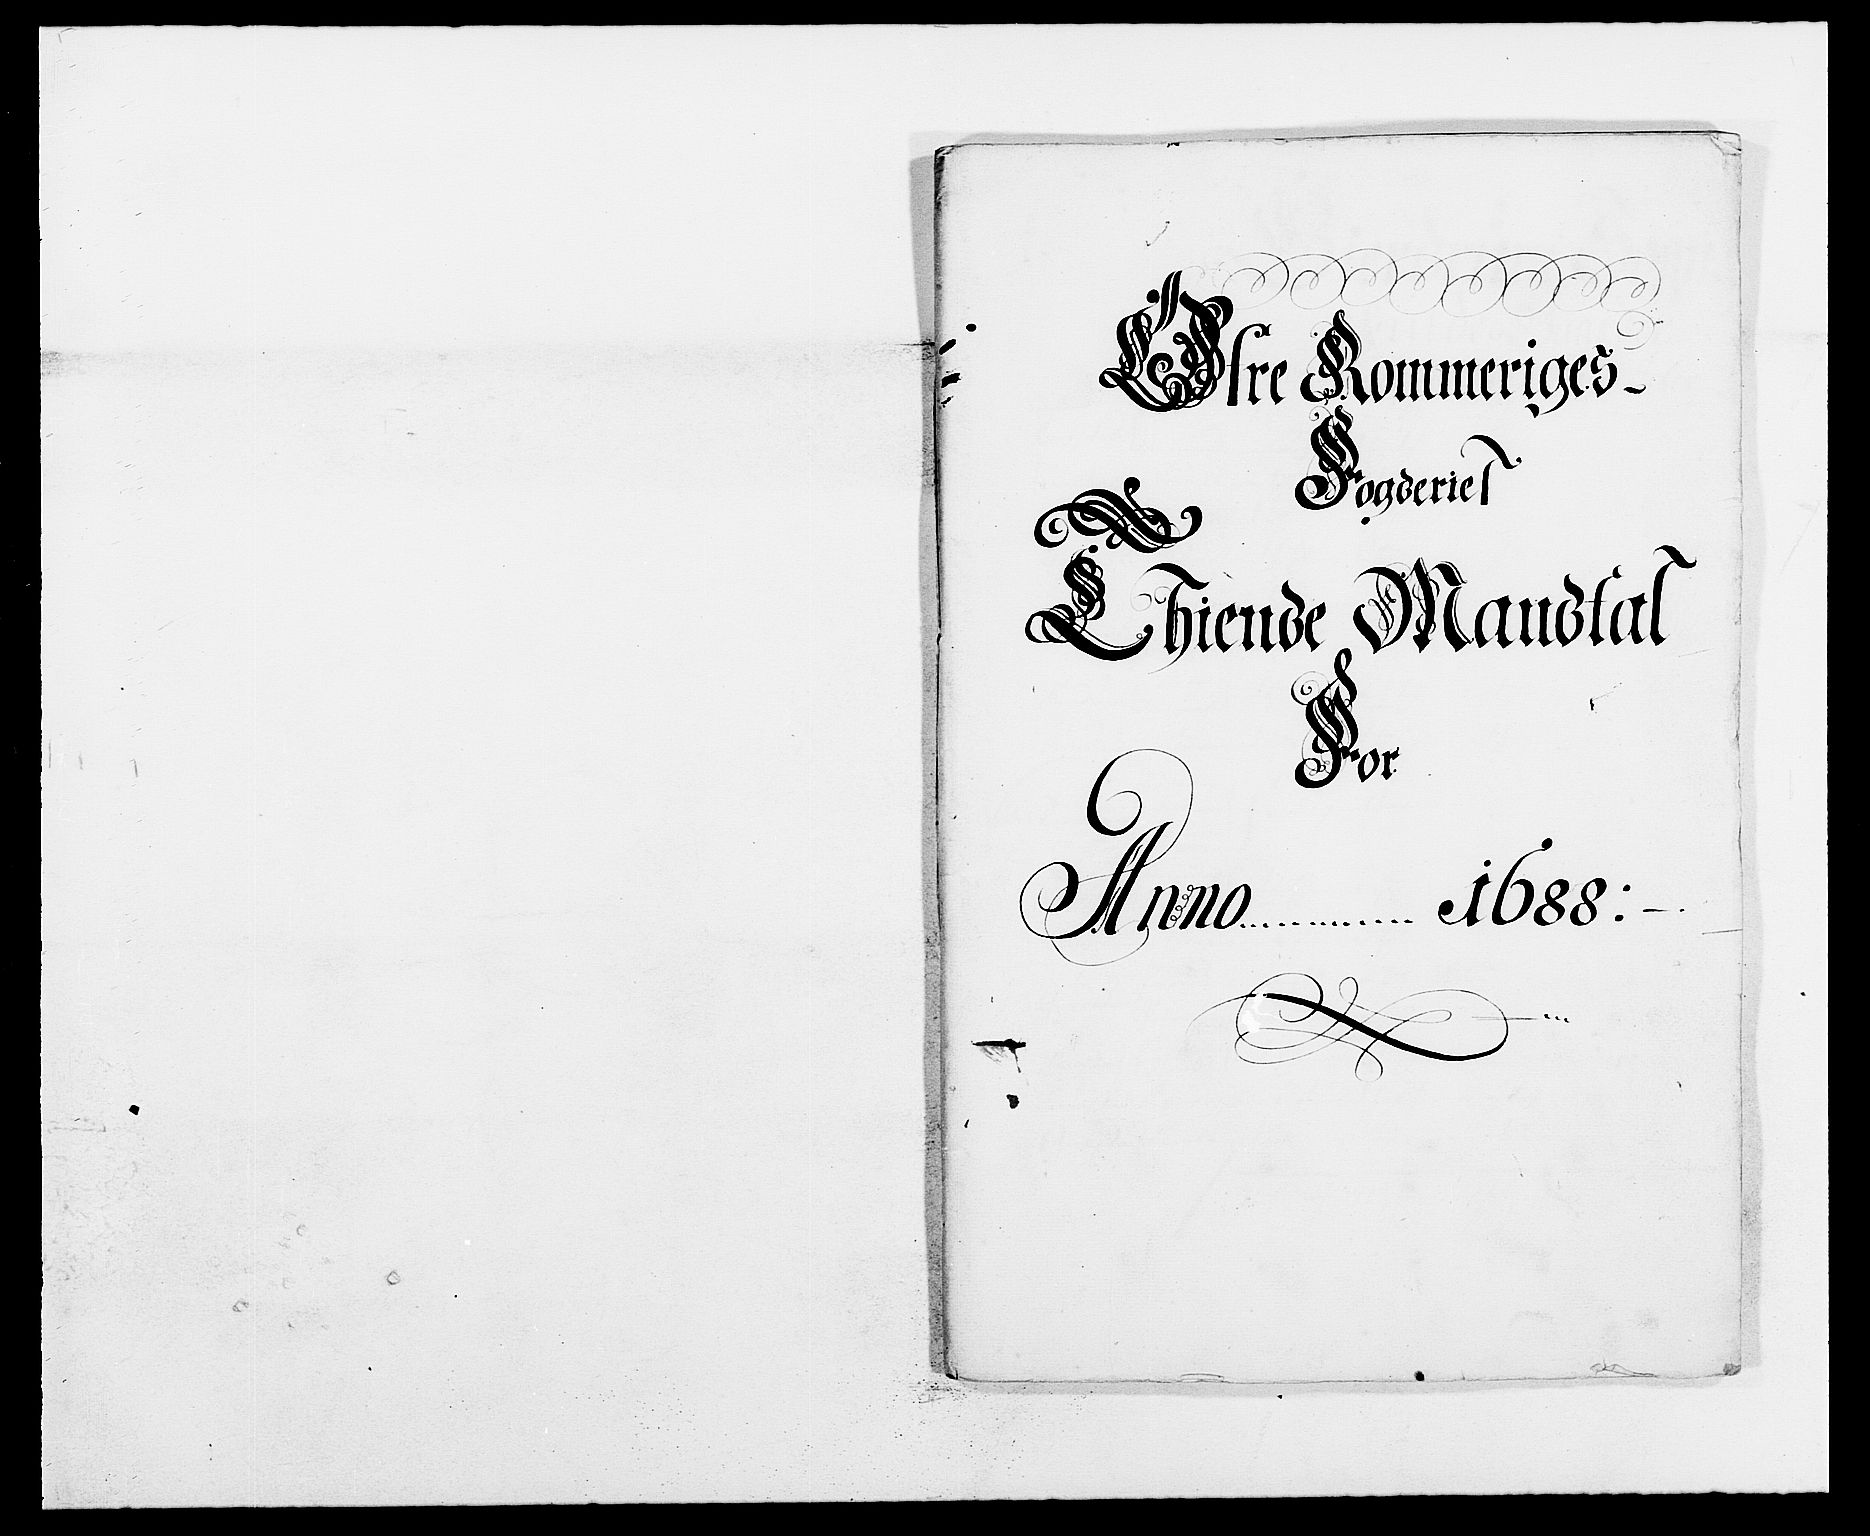 Øfre Rommeriges-
Fogderies
Thiende Mandtal
For
Anno ........... 1688:-